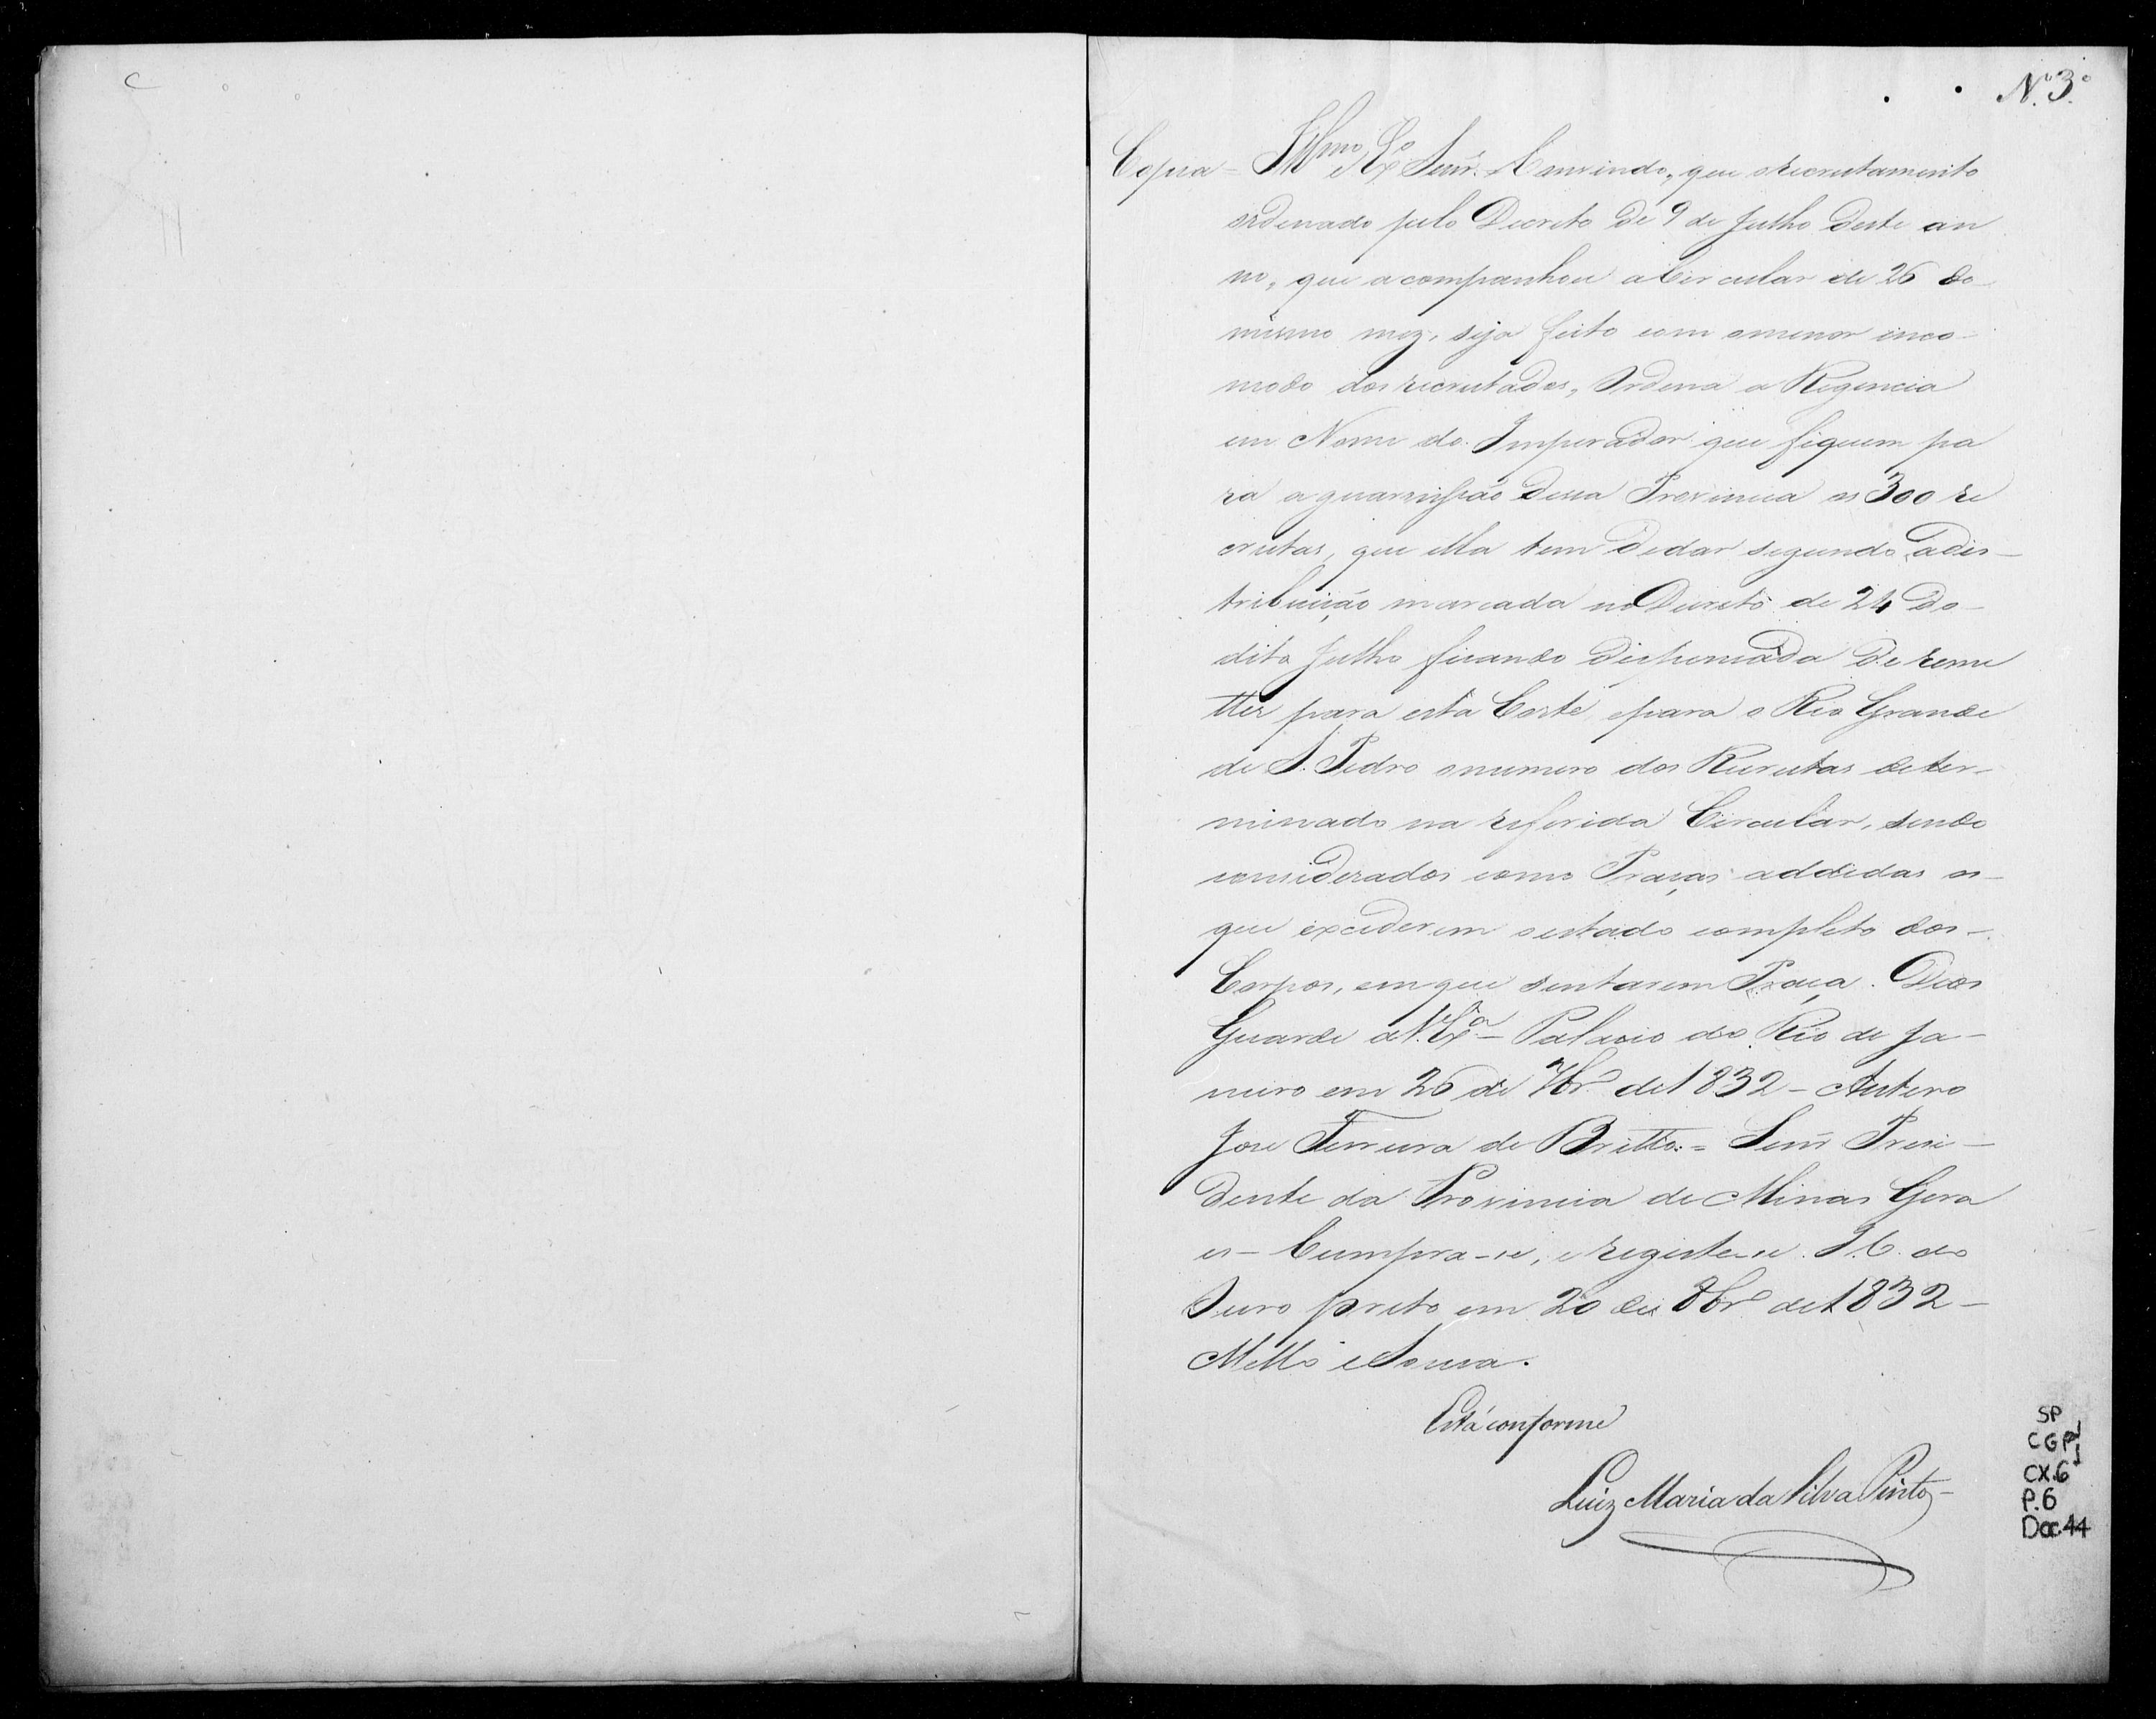 Nº 3º
Copia - Illmo e Exº Senr. Convindo, que o recrutamento
ordenado pelo Decreto de 9 de Julho deste an
no, que acompanhou a Circular de 26 do
mesmo mez, seja feito com o menor inco-
modo dos recrutados, Ordena a Regencia
em Nome do Imperador que fiquem pa
ra a guarnição dessa Provincia os 300 re
crutas, que ella tem de dar segundo a dis-
tribuição marcada no Decreto de 24 do
dito Julho ficando dispensada de reme
tter para esta Corte, e para o Rio Grande
de S. Pedro o numero dos Recrutas deter-
minado na referida Circular, sendo
considerados como Praças addidas os
que excederem o estado completo dos
Corpos, em que sentarem Praça. Deos
Guarde a V. Exª - Palacio do Rio de Ja-
neiro em 26 de 7brº de 1832 - Antero
Jose Ferreira de Britto = Senr Presi-
dente da Provincia de Minas Gera
es - Cumpra-se, e registe-se. I. C. do
Ouro preto em 20 de 8brº de 1832 -
Mello e Souza.
Está conforme
Luiz Maria da Silva Pinto
SP
CGP1
CX.6
P.6
Doc.44